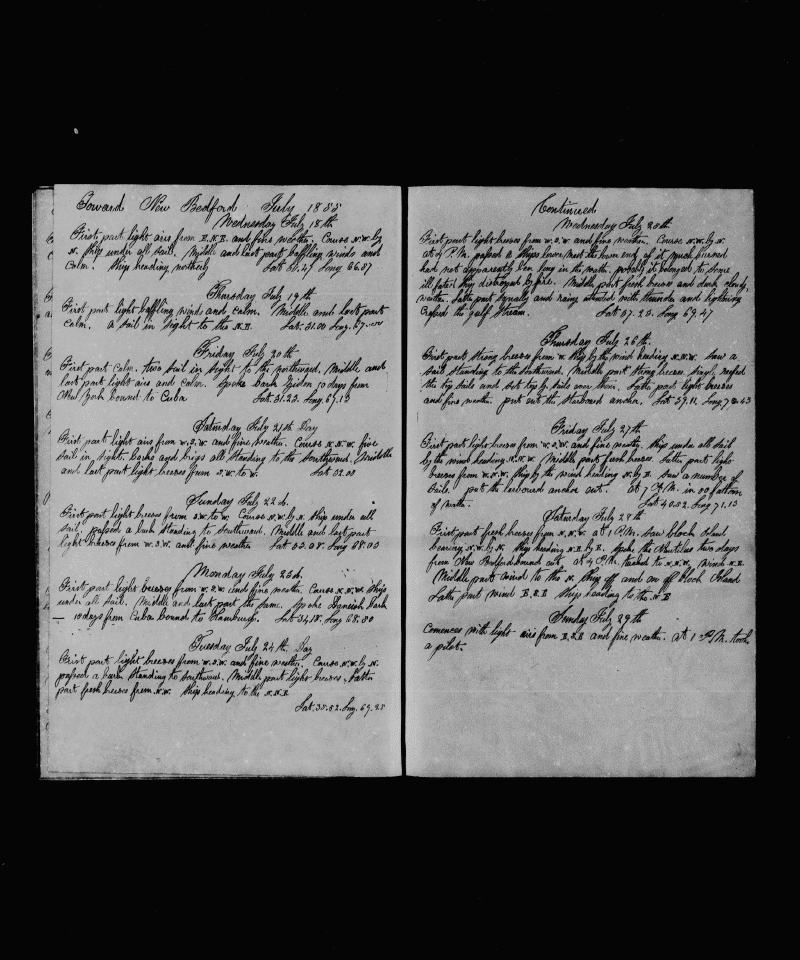 Toward New Bedford July 1855
Wednesday July 18th
First part light airs from E.N.E. and fine weather. Course N.W. by
N. Ship under all sail. Middle and last part baffling winds and
Calm. Ship heading northerly Long 66.07
Thursday July 19th
First part light baffling winds and calm. Middle and last part
Calm. a sail in sight to the N.E. Lat. 31.00 Long. 67.00
Friday July 20th
First part Calm. two sail in sight to the northward. Middle and
last part light airs and Calm. Spoke Bark 50 days from
New York bound to Cuba Lat 31.23. Long 67.13
Saturday July 21st Day
First part light airs from W.S.W. and fine weather. Course N.N.W. five
sail in sight. barks and brigs all standing to the southward. Middle
and last part light breeses from S.W. to W. Lat 32.00
Sunday July 22d.
First part light breeses from S.W. to W. Course N.W. by N. Ship under all
sail. passed a bark standing to Southward. Middle and last part
light breeses from W.S.W. and fine weather Lat 33.08. Long 68.00
Monday July 23d.
First part light breeses from W.S.W. and fine weather. Course N.N.W. Ship
under all sail. Middle and last part the same. Spoke Danish Bark
10 days from Cuba bound to Hamburg. Lat 34.18. Long 68.30
Tuesday July 24th. Day
First part light breeses from W.S.W. and fine weather. Course N.W. by N.
passed a bark standing to southward. Middle part light breeses. Latter
part fresh breeses from N.W. Ship heading to the N.N.E
Lat. 35.52. Long. 69.25
Continued
Wednesday July 25th
First part light breeses from W.S.W. and fine weather. Course N.W. by N.
at 4 P.M. passed a Ships lower mast the lower end of it much burned
had not apparently ben long in the water. posibly it belonged to some
ill fated ship distroyed by fire. Middle part fresh breeses and dark cloudy
weather. Latter part squally and rainy attended with thunder and lightning
Crossed the gulf stream. Lat 37.23. Long 69.47
Thursday July 26th.
First part strong breeses from W. Ship by the wind heading N.N.W. Saw a
sail standing to the Southward. Middle part strong breeses. singl reefed
the top sails and set top g. sails over them. Latter part light breeses
and fine weather. put out the starboard anchor. Lat 39.11. Long. 70.43
Friday July 27th
First part light breeses from W.S.W. and fine weather. Ship under all sail
by the wind heading N.N.W. Middle part fresh breeses. Latter part light
breeses from W.N.W. Ship by the wind heading N. by E. Saw a number of
sails. put the larboard anchor out. at 7 P.M. in 30 fathom
of water. Lat 40.52. Long 71.13
Saturday July 28th
First part fresh breeses from N.N.W. at 1 P.M. saw block Island
bearing N.W. by N. Ship heading N.E. by E. Spoke the Nautilus two days
from New Bedford bound out. at 4 P.M. tacked to N.N.W. wind N.E.
Middle part wind to the N. Ship off and on off block Island
Latter part wind E.S.E. Ship heading to the N.E
Sunday July 29th
Comences with light airs from E.S.E and fine weather. at 1 P.M. took
a pilot.